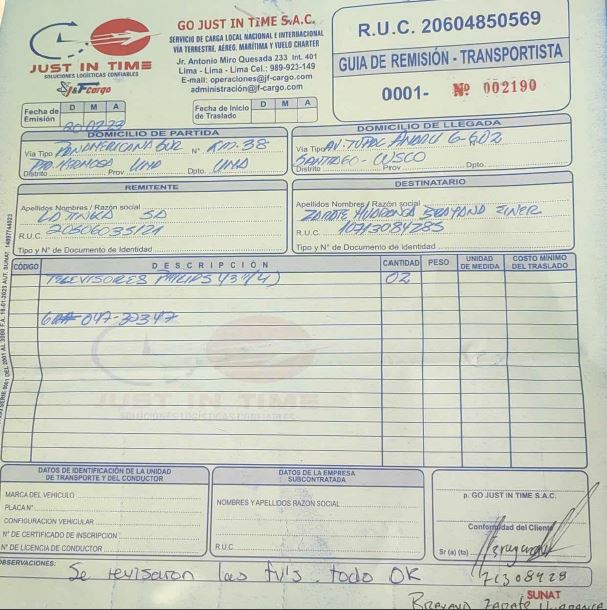 GO JUST IN TIME S.A.C.
SERVICIO DE CARGA LOCAL NACIONAL E INTERNACIONAL
VIA TERRESTRE, AEREO, MARÍTIMA Y VUELO CHARTER
Jr. Antonio Miro Quesada 233 Int. 401
Lima - Lima - Lima Cel.: 989-923-149
E-mail: operaciones@jf-cargo.com
administración@jf-cargo.com
JUST IN TIME
SOLUCIONES LOGÍSTICAS CONFIABLES
J&F cargo
R.U.C. 20604850569
GUIA DE REMISIÓN - TRANSPORTISTA
0001- Nº 002190
Fecha de Emisión D M A
Fecha de Inicio de Traslado D M A
DOMICILIO DE PARTIDA
Vía Tipo PANAMERICANA SUR N° KM. 38
Distrito Prov LIMA Dpto. LIMA
DOMICILIO DE LLEGADA
Vía Tipo AV. TUPAC AMARU G-602
SANTIAGO - CUSCO
Distrito Prov Dpto.
REMITENTE
Apellidos Nombres / Razón social
LA TINKA SA
R.U.C. 20506035121
Tipo y N° de Documento de Identidad
DESTINATARIO
Apellidos Nombres / Razón social
ZARATE HUARANCA BRAYAND EINER
R.U.C. 10713084285
Tipo y N° de Documento de Identidad
CÓDIGO DESCRIPCIÓN CANTIDAD PESO UNIDAD DE MEDIDA COSTO MÍNIMO DEL TRASLADO
TELEVISORES PHILIPS 43" 02
047-20347
JUST IN TIME
SOLUCIONES LOGÍSTICAS CONFIABLES
DATOS DE IDENTIFICACIÓN DE LA UNIDAD DE TRANSPORTE Y DEL CONDUCTOR
MARCA DEL VEHICULO
PLACA N°
CONFIGURACION VEHICULAR
N° DE CERTIFICADO DE INSCRIPCION
N° DE LICENCIA DE CONDUCTOR
DATOS DE LA EMPRESA SUBCONTRATADA
NOMBRES Y APELLIDOS RAZON SOCIAL
R.U.C.
p. GO JUST IN TIME S.A.C.
Conformidad del Cliente
Sr (a) (ta)
71308428
OBSERVACIONES: Se revisaron las tv's. todo OK
SUNAT
BRAYAND ZARATE HUARANCA